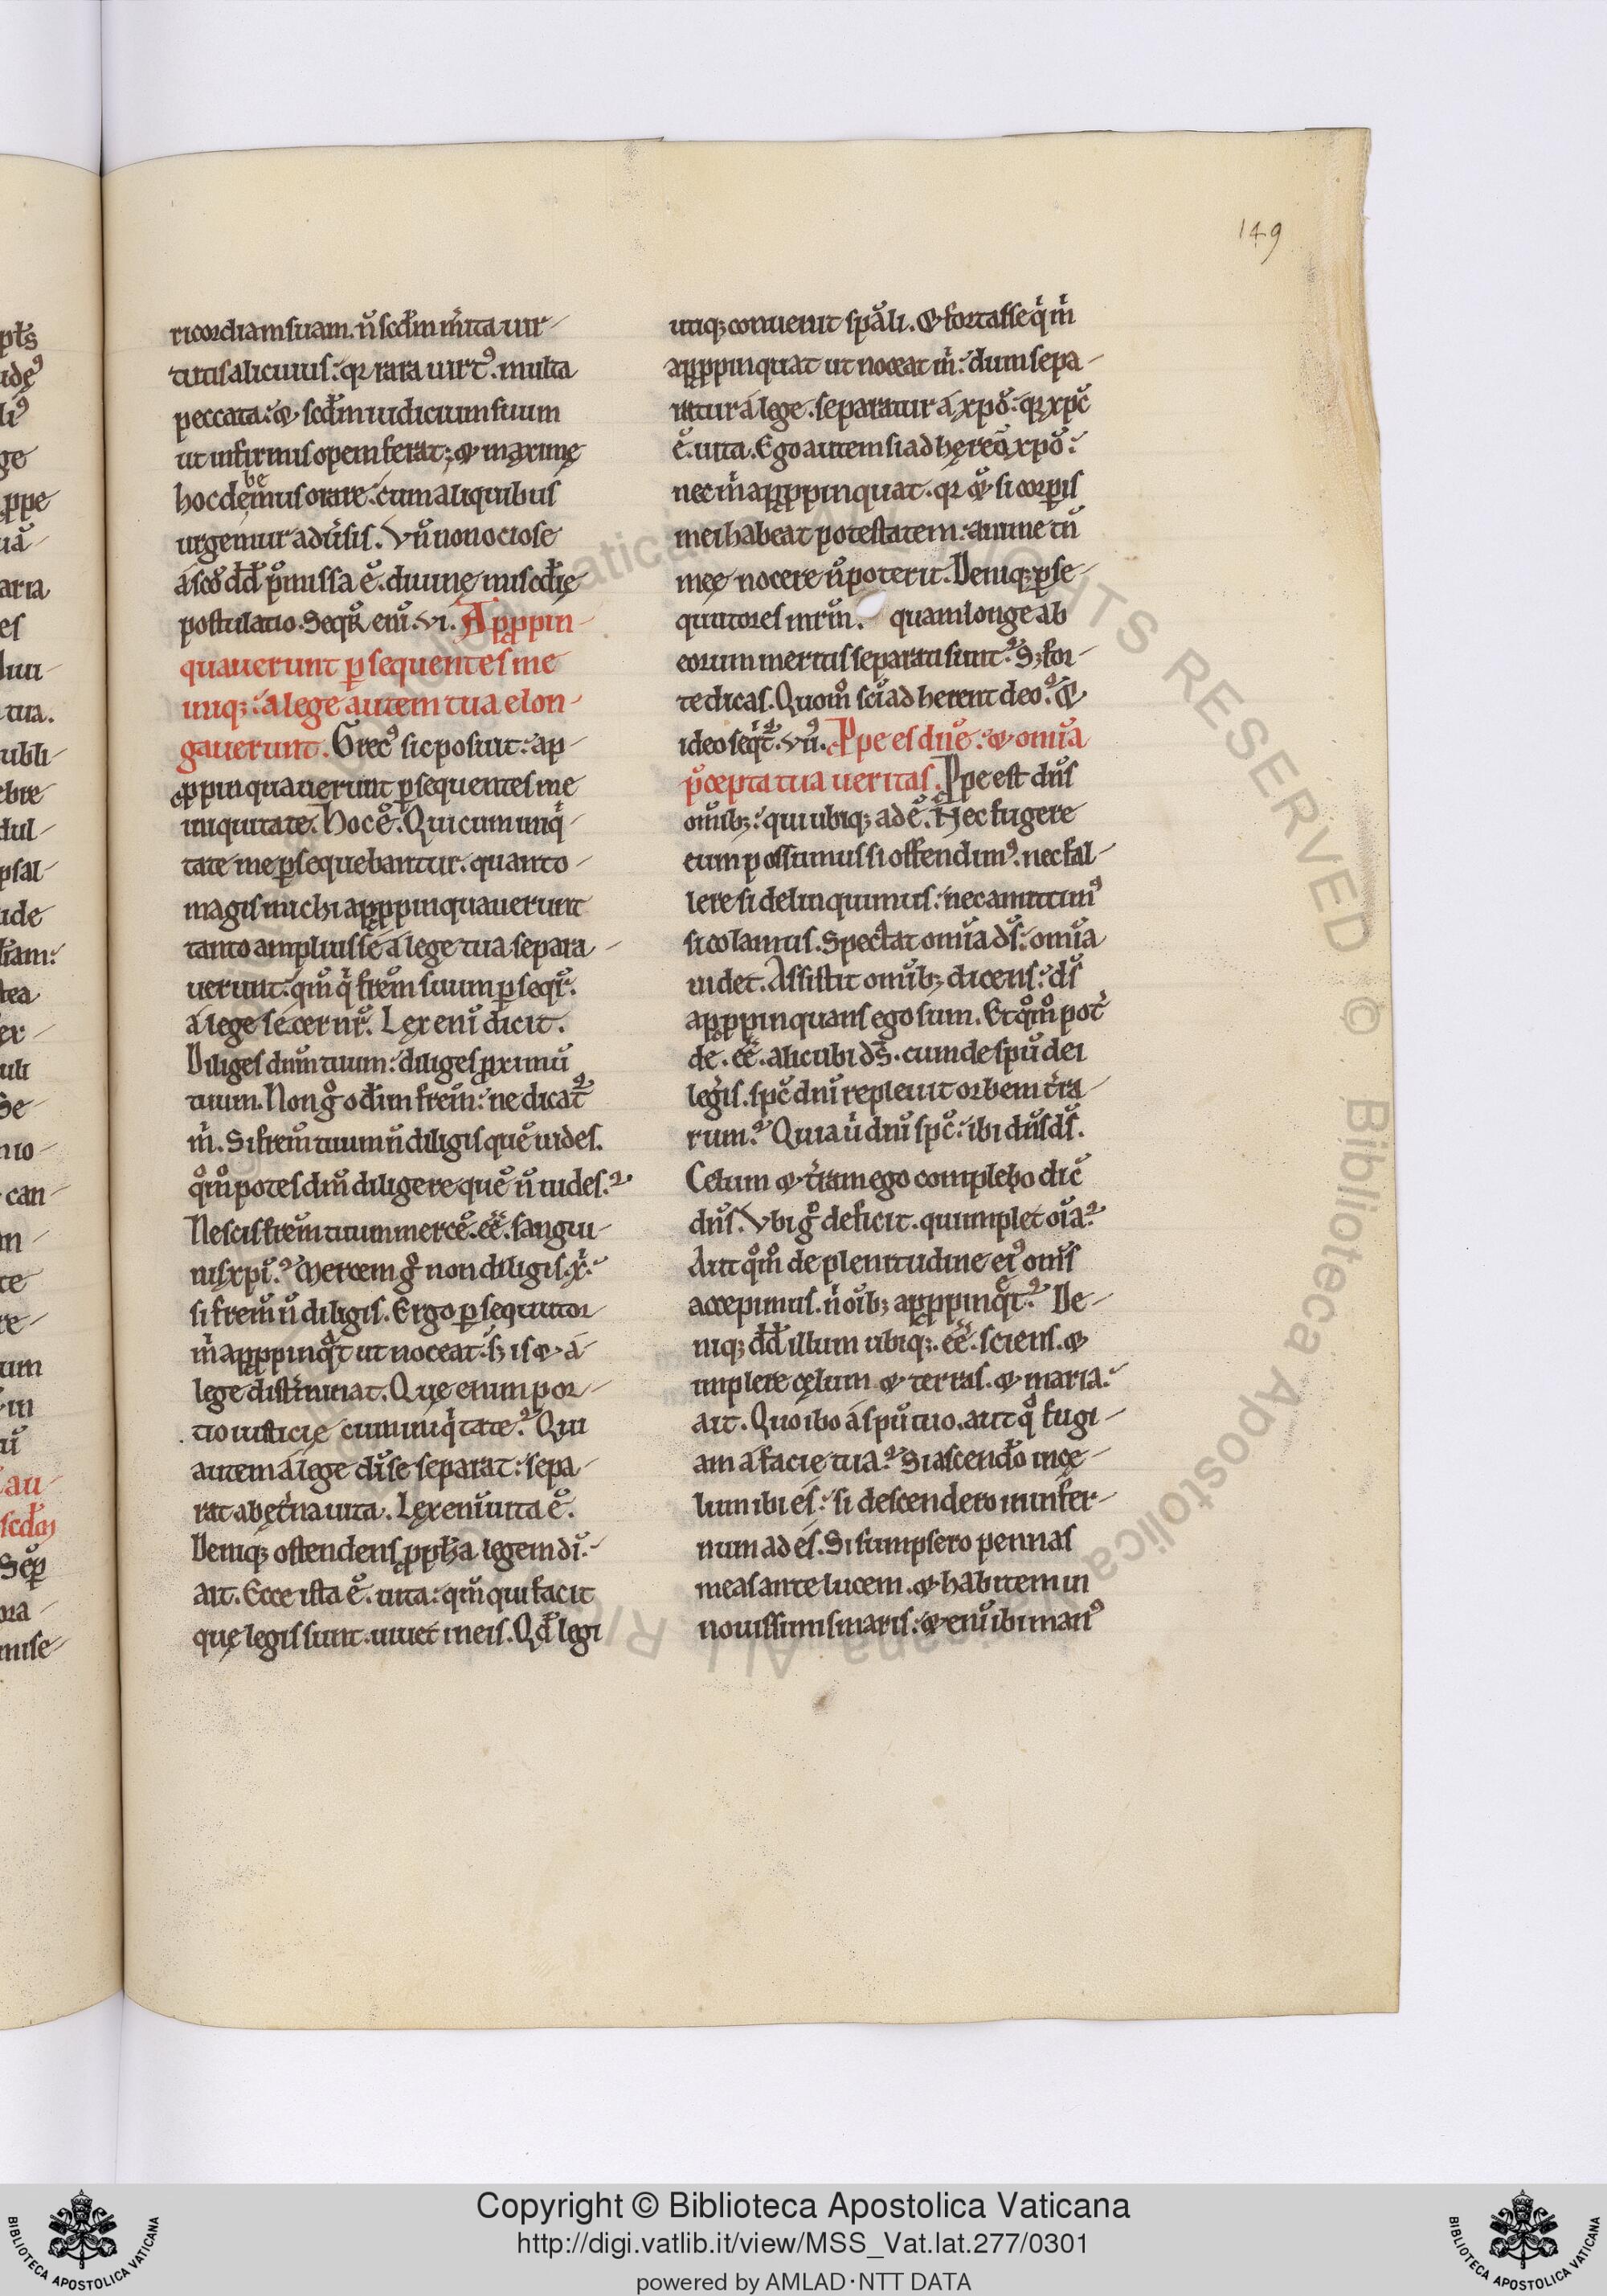 149
ricordiam suam. n̄ scd̄m m̄ita uir-
tutis alicuius: qr rara uirtꝰ. multa
peccata: & scd̄m iudicium suum
ut infirmis opem ferat; & maxime
hoc dębemus orare: cum aliquibus
urgemur adūsis. Vn̄ non ociose
a sc̄o dd̄ p̄missa ē. diuinę mis̄cdię
postulatio. Seqr̄ eni̅. vi. Apꝓpin-
quauerunt ꝑsequentes me
iniq; a lege autem tua elon-
gauerunt. Grecꝰ sic posuit: ap-
ꝓpinquauerunt ꝑsequentes me
iniquitate. Hoc ē. Qui cum iniq̇-
tate me ꝑsequebantur. quanto-
magis michi apꝓpinquauerunt
tanto amplius se a lege tua separa-
uerunt. qm̄ q̇ frem̄ suum ꝑseqr̄.
a lege secernr̄. Lex eni̅ dicit.
Diliges dnm̄ tuum: diliges ꝓximū
tuum. Non gͦ odi̅m frem̄: ne dicat̄
m̄. Si frem̄ tuum n̄ diligis quē uides.
qͦm̄ potes dm̄ diligere quē n̄ uides.
Nescis frem̄ tuum mercē. eē. sangui-
nis xp̄i. Mercem gͦ non diligis. x̄.
si frem̄ n̄ diligis. Ergo ꝑsequutor
m̄ apꝓpinqͣt ut noceat. s; is & a
lege dist̄minat. Quę enim por-
tio iusticię cum iniq̇tate. Qui
autem a lege di̅ se separat: sepa-
rat ab et̄na uita. Lex eni̅ uita ē.
Deniq; ostendens ꝓpħa legem di̅.
ait. Ecce ista ē. uita: qm̄ qui facit
quę legis sunt. uiuet in eis. Qd̄ legi
utiq; conuenit spāli. & fortasse q̇ m̄
apꝓpinquat ut noceat m̄: dum sepa-
ratur a lege. separatur a xp̄o: q; xp̄c
ē. uita. Ego autem si adhęreo xp̄o:
nec m̄ apꝓpinquat. qr & si corꝑis
mei habeat potestatem: anime tn̄
męę nocere n̄ poterit. Deniq; ꝑse-
quutores mr̄m. quam longe ab
eorum meritis separati sunt. S; for-
te dicas. Quom̄ sci̅ adherent deo. Et
ideo seqͥt̄. vii. Ppe es dn̄e: & omi̅a
p̄cepta tua ueritas. Ppe est dn̄s
omi̅b; qui ubiq; adē. Nec fugere
eum possumus si offendimꝰ. nec fal-
lere si delinquimus: nec amittimꝰ
si colamus. Spectat omi̅a ds̄: omi̅a
uidet. Assistit omi̅b; dicens: ds̄
apꝓpinquans ego sum. Et qͦm̄ pot̄
de. eē. alicubi ds̄. cum de spū dei
leḡis. spc̄ dni̅ repleuit orbem t̄ra-
rum. Quia u̇ dni̅ spc̄: ibi dn̄s ds̄.
Celum & t̄ram ego complebo dic̄
dn̄s. Vbi gͦ deficit. qui implet oi̅a.
Aut qͦm̄ de plenitudine eiꝰ om̄s
accepimus. n̄ oi̅b; apꝓpinqͣt. De-
niq; dd̄ illum ubiq;. eē. sciens. &
implere cęlum & terras. & maria.
ait. Quo ibo a spū tuo. aut qͦ fugi-
am a facie tua. Si ascend̄o in cę-
lum ibi es: si descendero in infer-
num ades. Si sumpsero pennas
meas ante lucem. & habitem in
nouissimis maris: & eni̅ ibi manꝰ
Copyright © Biblioteca Apostolica Vaticana
http://digi.vatlib.it/view/MSS_Vat.lat.277/0301
powered by AMLAD·NTT DATA